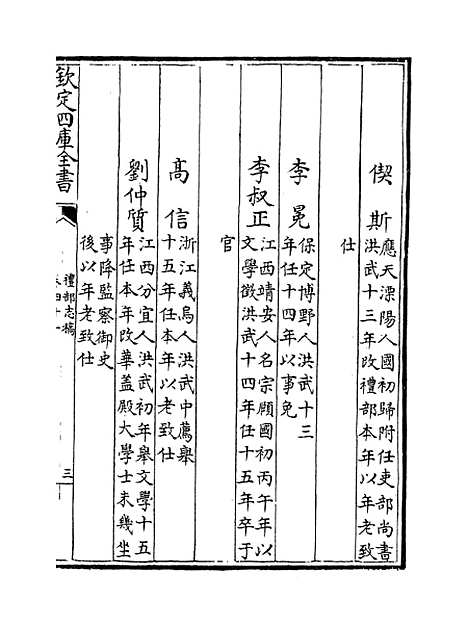 偰斯應天溧陽人國初歸附任吏部尚書
洪武十三年改禮部本年以年老致
仕
李冕保定博野人洪武十三
年任十四年以事免
李叔正江西靖安人名宗頤國初丙午年以
文學徵洪武十四年任十五年卒于
官
高信浙江義烏人洪武中薦舉
十五年任本年以老致仕
劉仲質江西分宜人洪武初年舉文學十五
年任本年改華蓋殿大學士未幾坐
事降監察御史
後以年老致仕
欽定四庫全書
禮部志稿
三